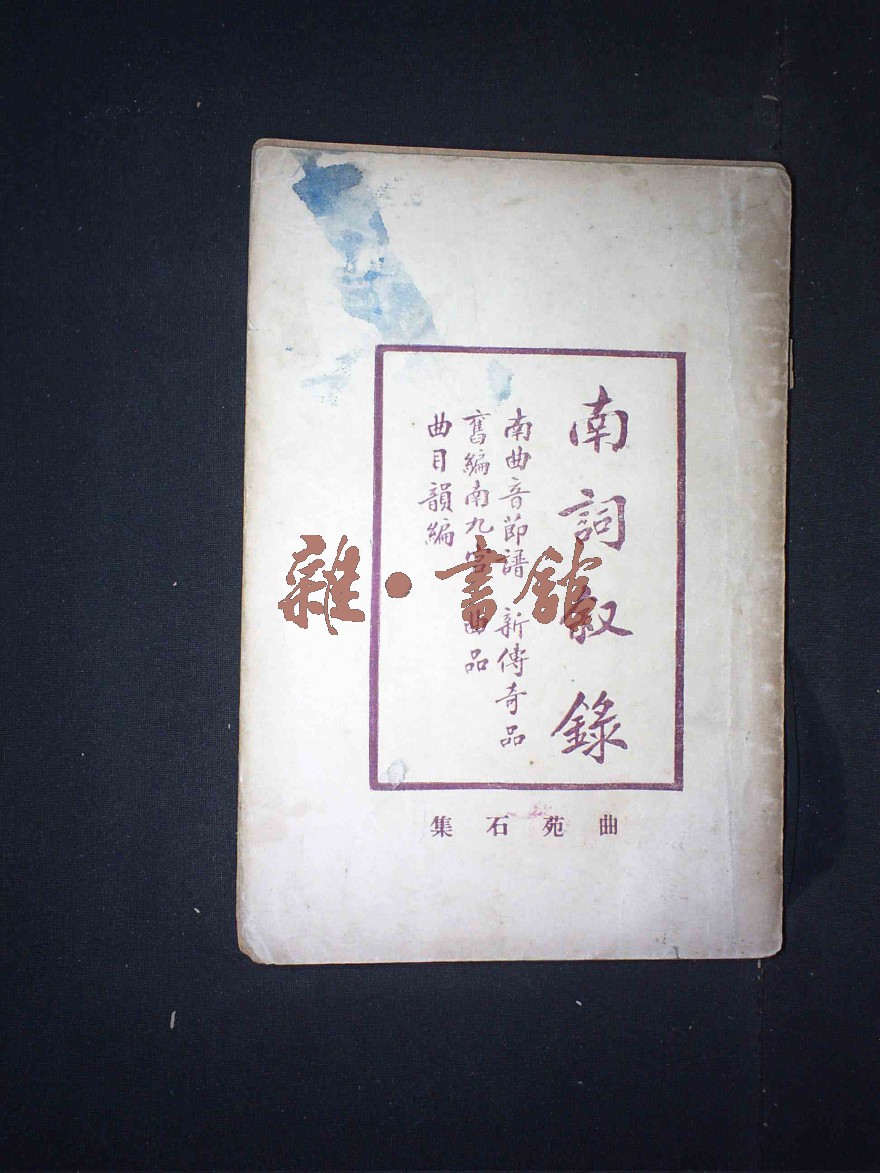 南詞叙錄
南曲音節譜 新傳奇品
舊編南九宮 曲品
曲目韻編
曲苑石集
雜·書館